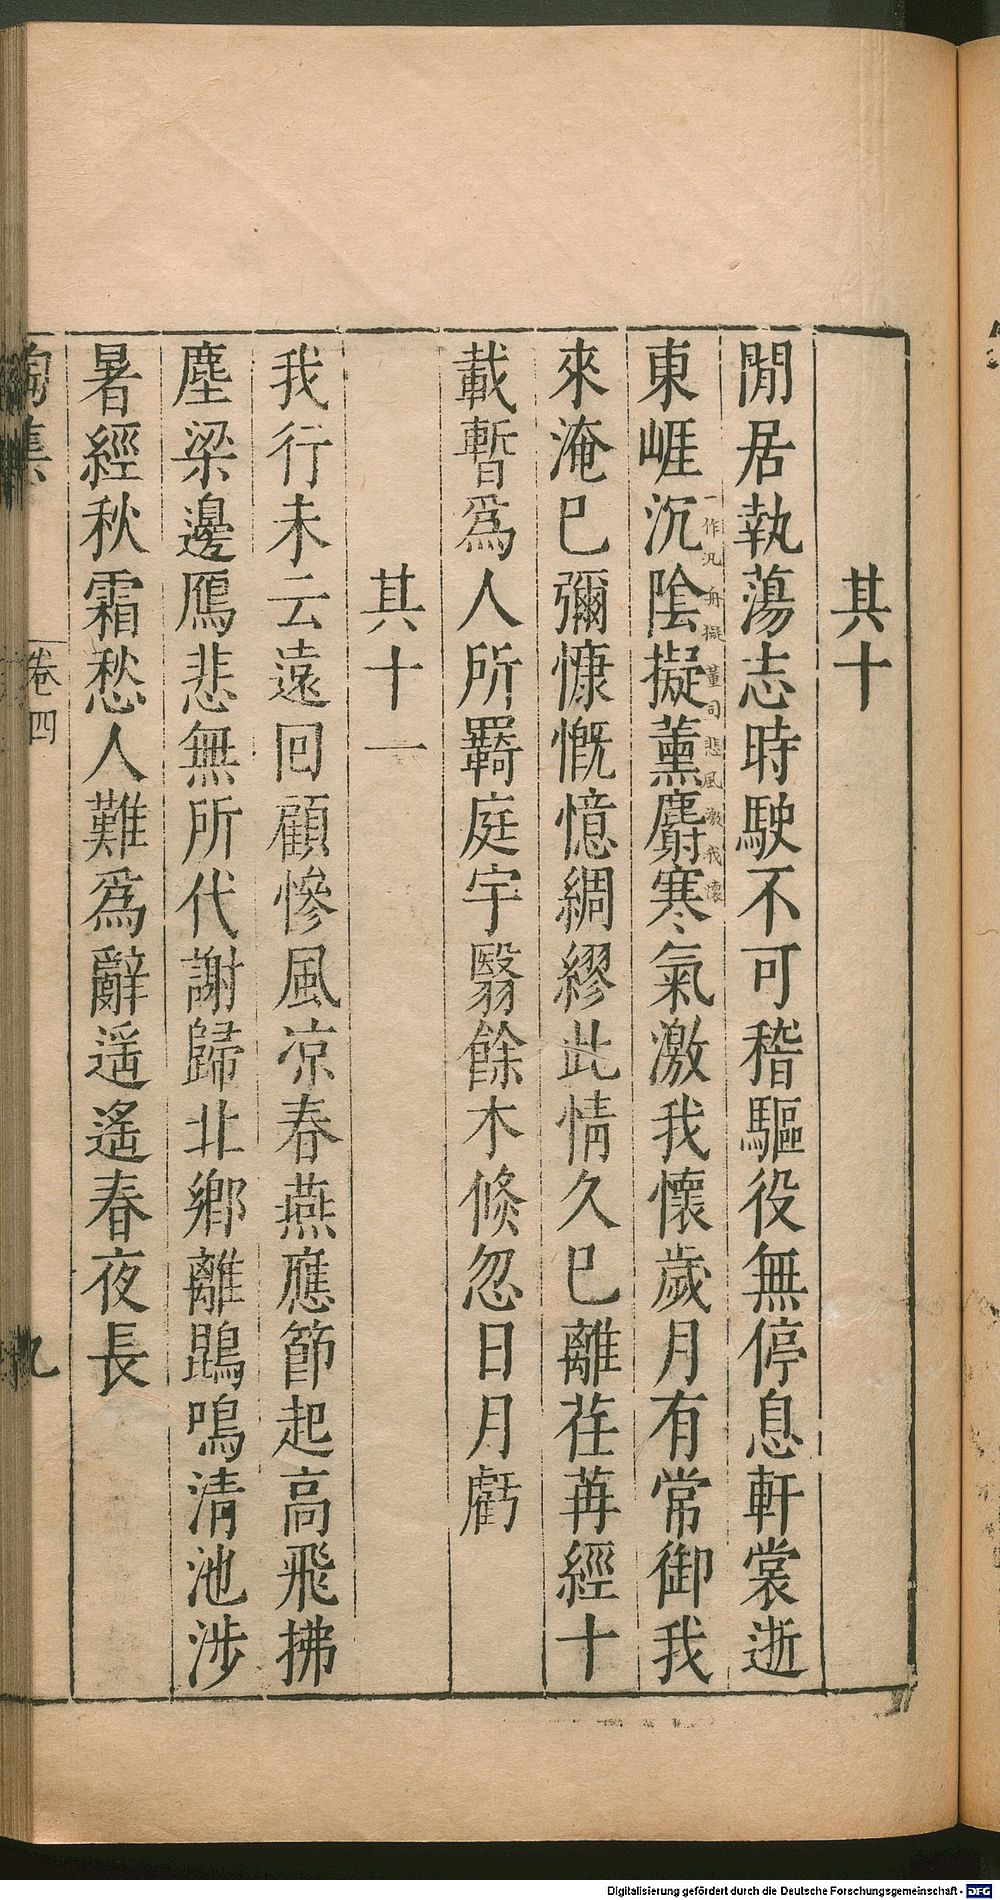 其十
閒居執蕩志時駛不可稽驅役無停息軒裳逝
東崕沉陰擬薰麝寒氣激我懷歲月有常御我
一作汎舟擬董司悲風激我懷
來淹已彌慷慨憶綢繆此情久已離荏苒經十
載暫為人所羈庭宇翳餘木倏忽日月虧
其十一
我行未云遠回顧慘風凉春燕應節起高飛拂
塵梁邊鴈悲無所代謝歸北鄉離鵾鳴清池涉
暑經秋霜愁人難為辭遥遙春夜長
陶集
卷四
九
Digitalisierung gefördert durch die Deutsche Forschungsgemeinschaft - DFG